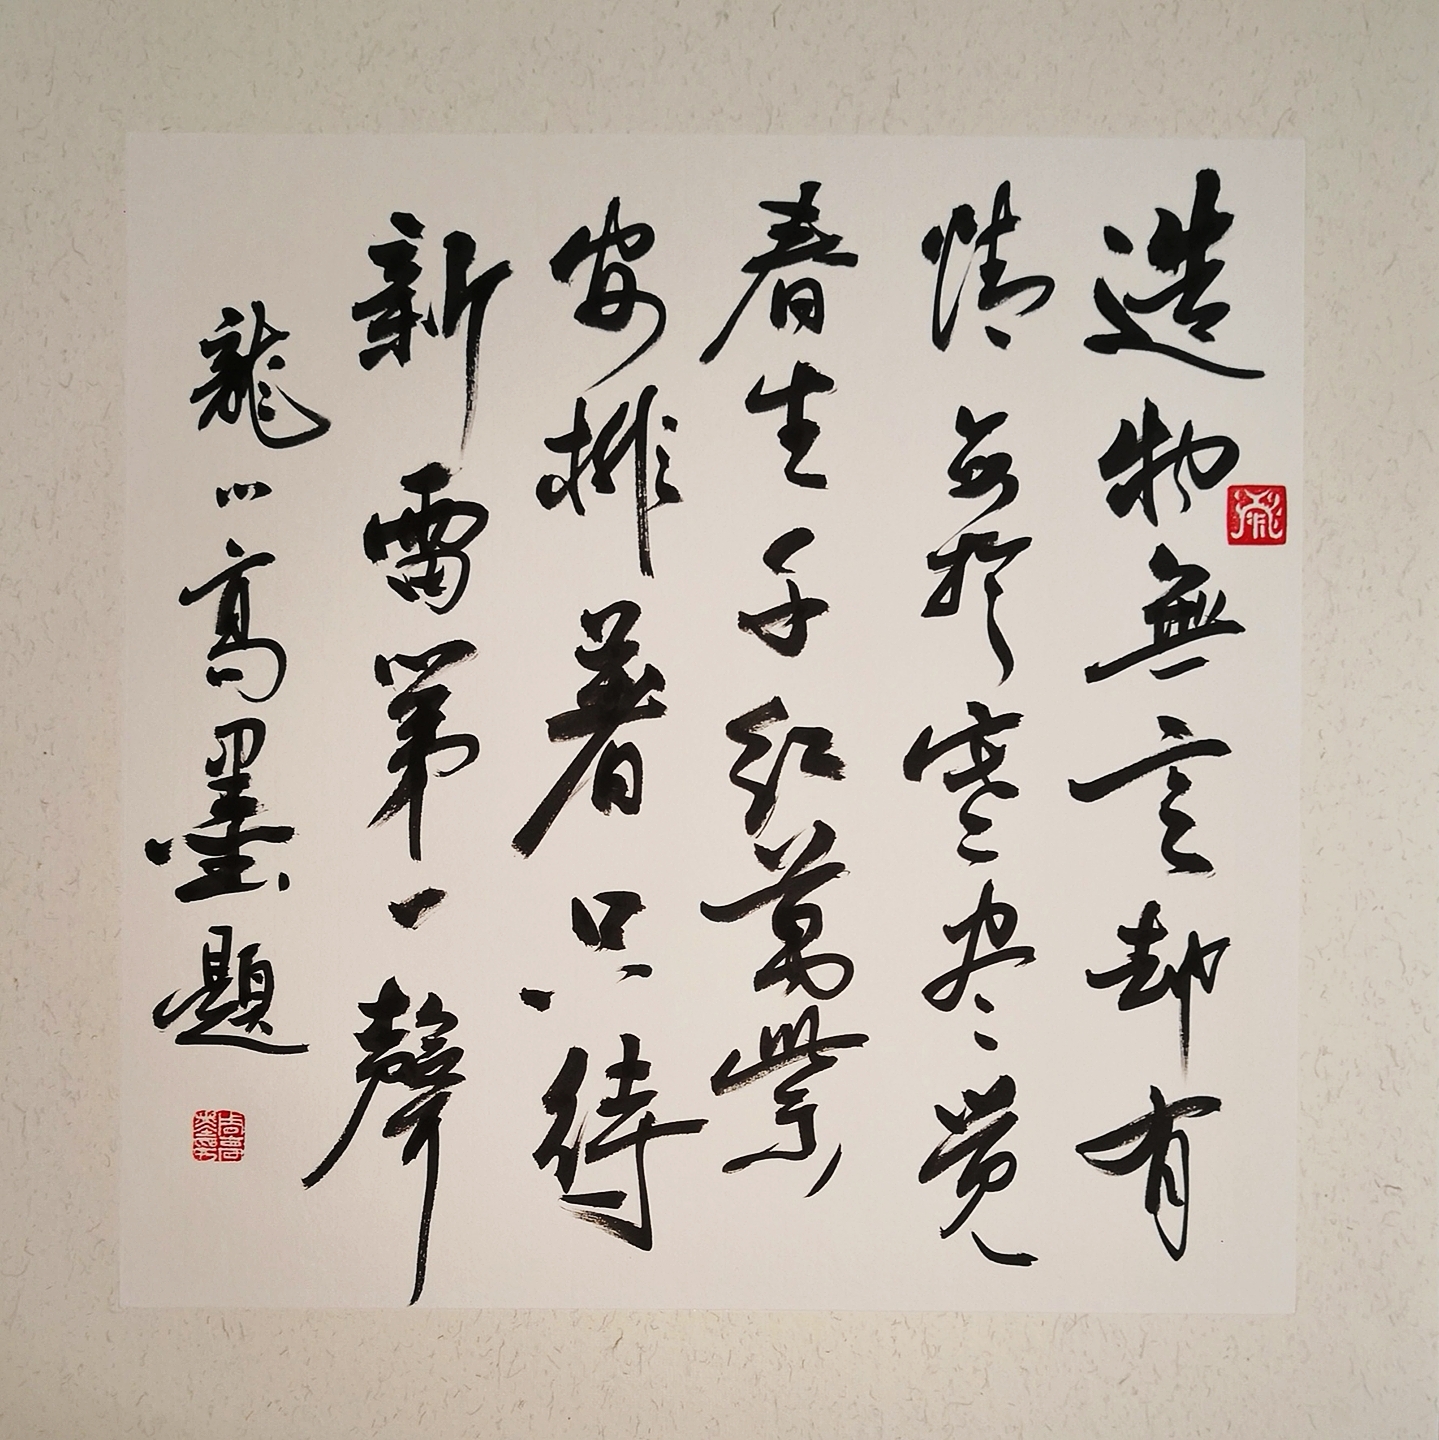 造物無言却有
情每於寒尽觉
春生千红萬紫
安排著只待
新雷第一聲
龍高墨題